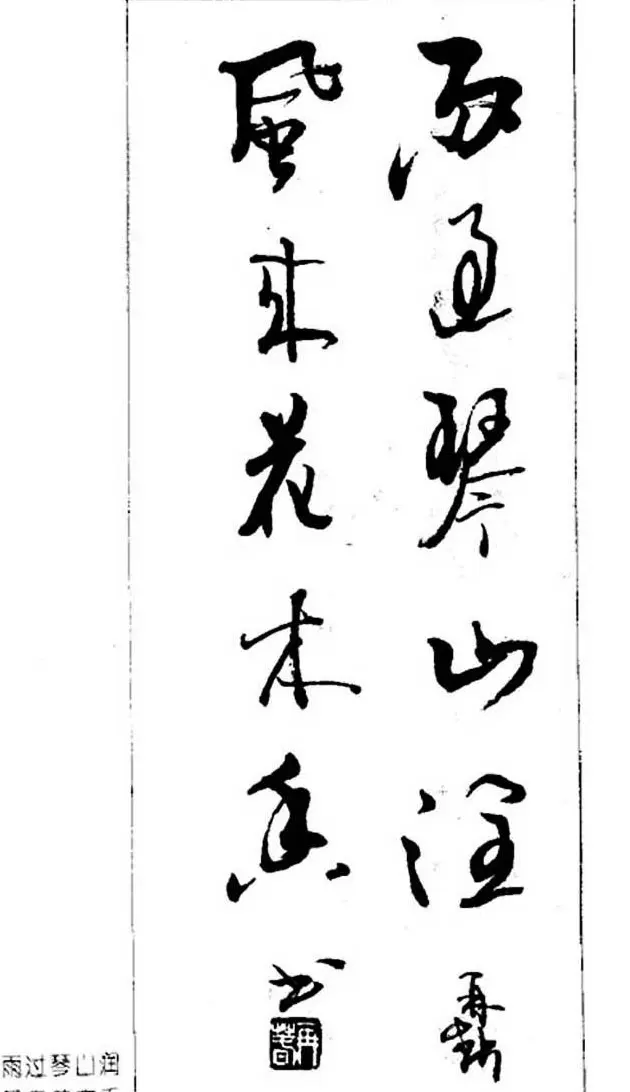 雨過琴山潤
風来花木香
書
雨过琴山润